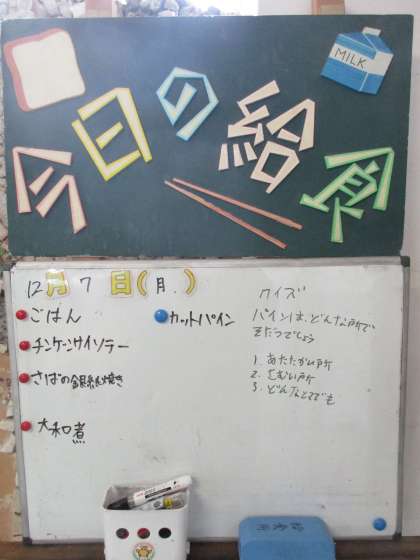 今日の給食
MILK
12月7日(月.)
ごはん
チンゲンサイソテー
さばの銀紙焼き
大和煮
カットパイン
クイズ
パインは、どんな所で
そだつでしょう
1. あたたかい所
2. さむい所
3. どんなとこでも